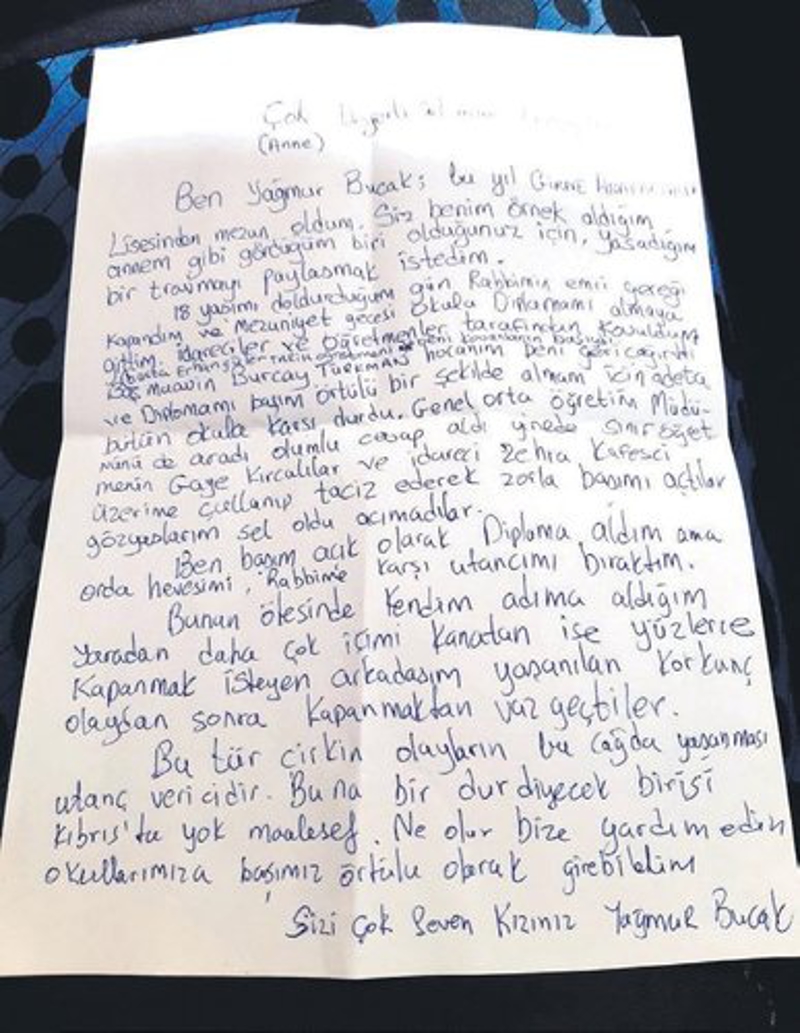 Çok
(Anne)
Ben Yağmur Bucak; bu yıl GİRNE
Lisesinden mezun oldum. Siz benim örnek aldığım
annem gibi gördüğüm biri olduğunuz için, yaşadığım
bir travmayı paylaşmak istedim.
18 yaşımı doldurduğum gün Rabbimin emri gereği
kapandım ve Mezuniyet gecesi okula Diplomamı almaya
gittim. İdareciler ve öğretmenler tarafından kovuldum
Baş muavin Burcay TÜRKMAN hocanım beni geri çağırdı
ve Diplomamı başım örtülü bir şekilde almam için adeta
bütün okula karşı durdu. Genel orta öğretim Müdü-
nünü de aradı olumlu cevap aldı yinede sınıf öğret
menin Gaye Kırcalılar ve idareci Zehra Kafesci
üzerime çullanıp taciz ederek zorla başımı açtılar
gözyaşlarım sel oldu acımadılar.
Ben başım açık olarak Diploma aldım ama
orda hevesimi, Rabbime karşı utancımı bıraktım.
Bunun ötesinde kendim adıma aldığım
yaradan daha çok içimi kanatan ise yüzlerce
kapanmak isteyen arkadaşım yaşanılan korkunç
olaydan sonra kapanmaktan vaz geçtiler.
Bu tür çirkin olayların bu çağda yaşanması
utanç vericidir. Buna bir dur diyecek birisi
kıbrıs'ta yok maalesef. Ne olur bize yardım edin
okullarımıza başımız örtülü olarak girebilelim
Sizi Çok Seven Kızınız Yağmur Bucak